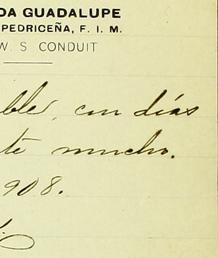 DA GUADALUPE
PEDRICEÑA, F. I. M.
W. S CONDUIT
ble, con días
te mucho.
908.